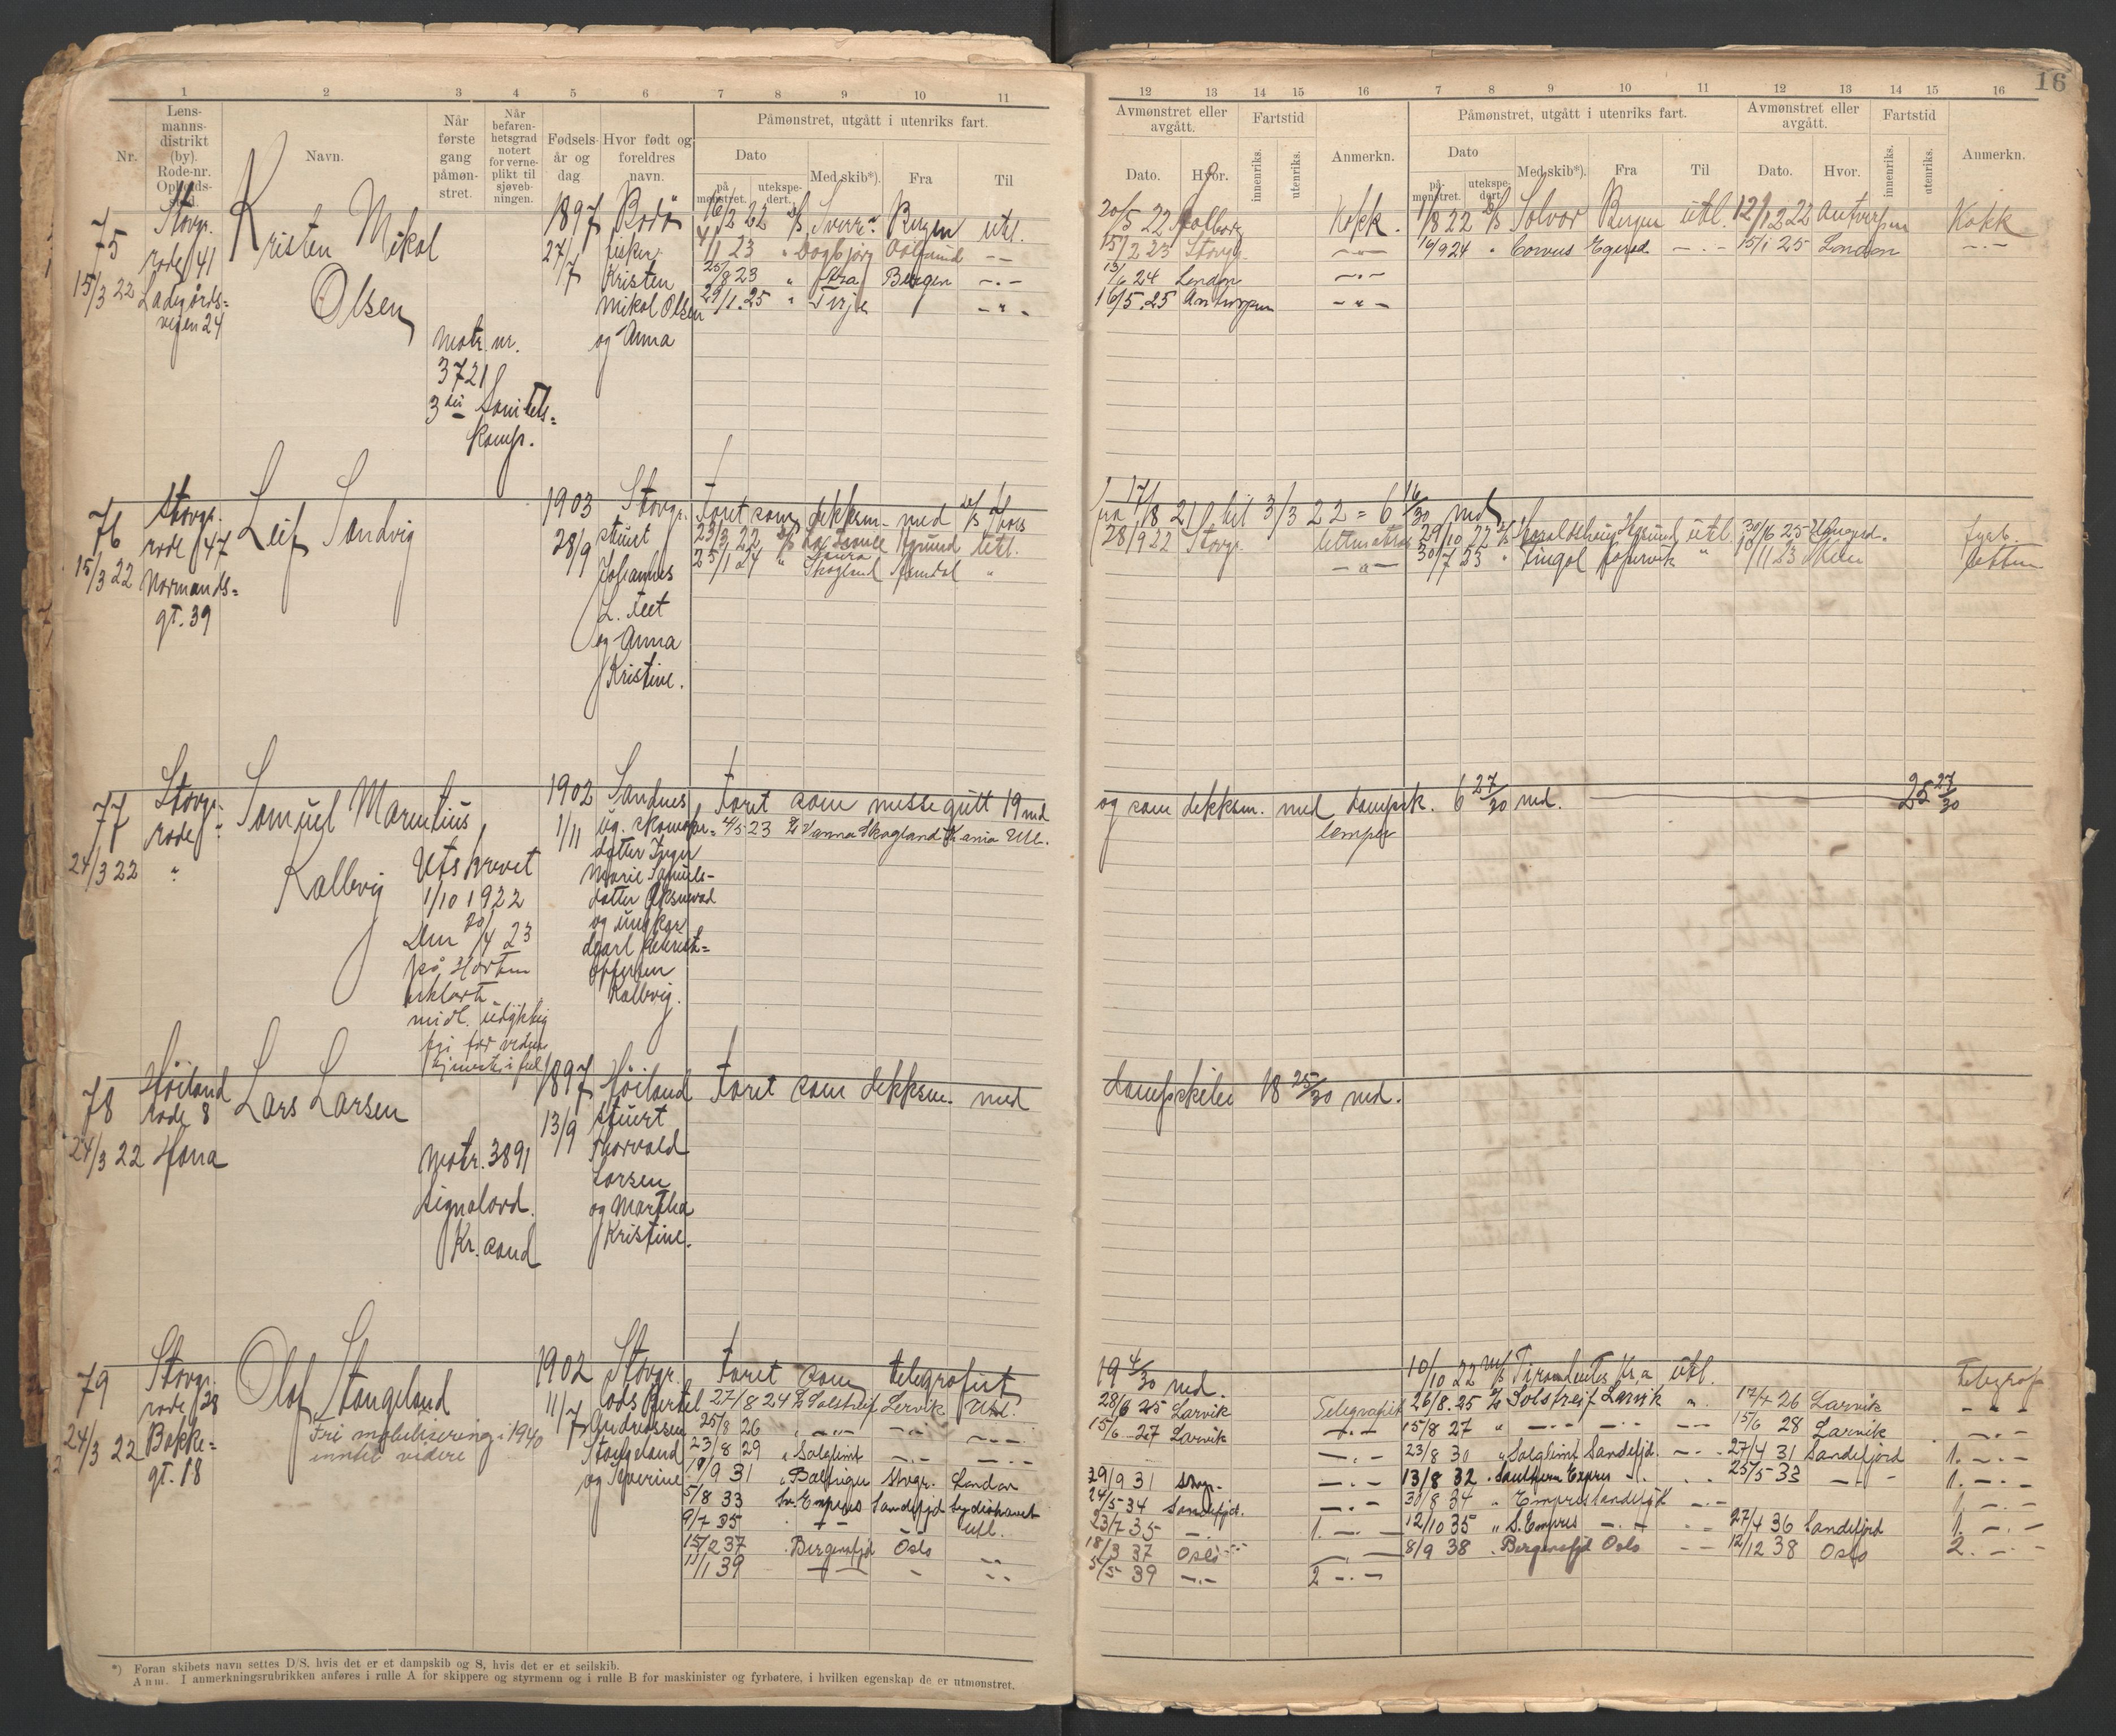 16
1 2 3 4 5 6 7 8 9 10 11
12 13 14 15 16 7 8 9 10 11 12 13 14 15 16
Nr.
Lens-
manns-
distrikt
(by).
Rode-nr.
Opholds-
sted.
Navn.
Når
første
gang
påmøn-
stret.
Når
befaren-
hetsgrad
notert
for verne-
plikt til
sjøveb-
ningen.
Fødsels-
år og
dag
Hvor født og
foreldres
navn.
Påmønstret, utgått i utenriks fart.
Dato
på-
mønstret.
utekspe-
dert.
Med skib*).
Fra
Til
Avmønstret eller
avgått.
Dato.
Hvor.
Fartstid
innenriks.
utenriks.
Anmerkn.
Påmønstret, utgått i utenriks fart.
Dato
på-
mønstret.
utekspe-
dert.
Med skib*).
Fra
Til
Avmønstret eller
avgått.
Dato.
Hvor.
Fartstid
innenriks.
utenriks.
Anmerkn.
75
15/3 22
Stavgr.
rode 41
Ladegårds=
veien 24
Kristen Mikal
Olsen
Matr. nr.
3721
3die Sanitets=
komp.
1897
27/7
Bodø
fisker
Kristen
Mikal Olsen
og Anna
16/2 22 d/s Sverre Bergen utl.
4/1 23 " Dagbjørg
25/8 23 " Bergen -"-
29/1.25 " Terje -"-
20/5 22 Aalborg Kokk.
15/2 23 Stavgr. -"-
13/6 24 London -"-
16/5.25 Antwerpen -"-
1/8 22 d/s Solvor Bergen utl. 12/12 22 Antverpen Kokk
16/9 24 " Corvus Egersd -"- 15/1 25 London -"-
76
15/3 22
Stavgr.
rode 47
Normands=
gt. 39
Leif Sandvig
1903
28/9
Stavgr.
stuert
Johannes
L. Teet
og Anna
Kristine.
Faret som dekksm. med d/s
23/3 22 d/s utl.
25/1 24 " Laura Skogland Arendal "
fra 17/8 21 til 3/3 22 = 6 16/30 md
28/9 22 Stavgr.
-"-
29/10 22 d/s Haraldshaug utl. 30/6 25 fyrb.
30/7 23 " Fingal "
77
24/3 22
Stavgr.
rode "
"
Samuel Marentius
Kallevig
Utskrevet
1/10 1922
Den 20/4 23
på Horten
erklært
midl. udyktig
1902
1/11
Sandnes
ug. skomaker=
datter Inger
Marie Samuels-
datter
og ungkar
Kallevig.
Faret som messegutt 19 md
4/5 23 d/s Hanna Skogland Kr.ania Utl.
og som dekksm. med dampsk. 6 27/30 md.
lemper
25 27/30
78
24/3 22
Høiland
rode 8
Hana
Lars Larsen
Matr. 3891
Signalavd.
Kr.sand
1897
13/9
Høiland
stuert
Thorvald
Larsen
og Martha
Kristine.
Faret som dekksm. med
dampskibe 18 25/30 md.
79
24/3 22
Stavgr.
rode 28
Bakke=
gt. 18
Olaf Stangeland
Fri mobilisering 1940
inntil videre
1902
11/7
Stavgr.
Bertel
Andreassen
Stangeland
og Severine
Faret som telegrafist
27/8 24 d/s Solstreif Larvik Utl.
25/8 26 " -"- -"- -"-
23/8 29 " Solglimt -"- -"-
19/9 31 " Baltique Stvgr. London
5/8 33 So. Empress Sandefjd Sydishavet
9/7 35 -"- Utl.
15/2 37 Bergensfjd Oslo
11/1 39 -"- " -"-
19 4/30 md.
28/6 25 Larvik Telegrafist
15/6 27 Larvik -"-
29/9 31 Stvgr. -"-
24/5 34 Sandefjd. -"-
23/7 35 -"- 1. -"-
18/3 37 Oslo -"-
5/5 39 -"- 2 -"-
10/10 22 m/s Tiradentes Kr.a utl. Telegraf
26/8.25 d/s Solstreif Larvik " 17/4 26 Larvik -"-
15/8 27 " -"- -"- 15/6 28 Larvik -"-
23/8 30 " Solglimt Sandefjd. -"- 27/4 31 Sandefjord 1. -"-
13/8 32 " Southern Expres -"- 25/5 33 -"- 1. -"-
30/8 34 " Empres Sandefjd -"- 1. -"-
12/10 35 " S. Empres -"- -"- 27/4 36 Sandefjrd 1. -"-
8/9 38 " Bergensfjd Oslo -"- 12/12 38 Oslo 2. -"-
*) Foran skibets navn settes D/S, hvis det er et dampskib og S, hvis det er et seilskib.
Anm. I anmerkningsrubrikken anføres i rulle A for skippere og styrmenn og i rulle B for maskinister og fyrbøtere, i hvilken egenskap de er utmønstret.